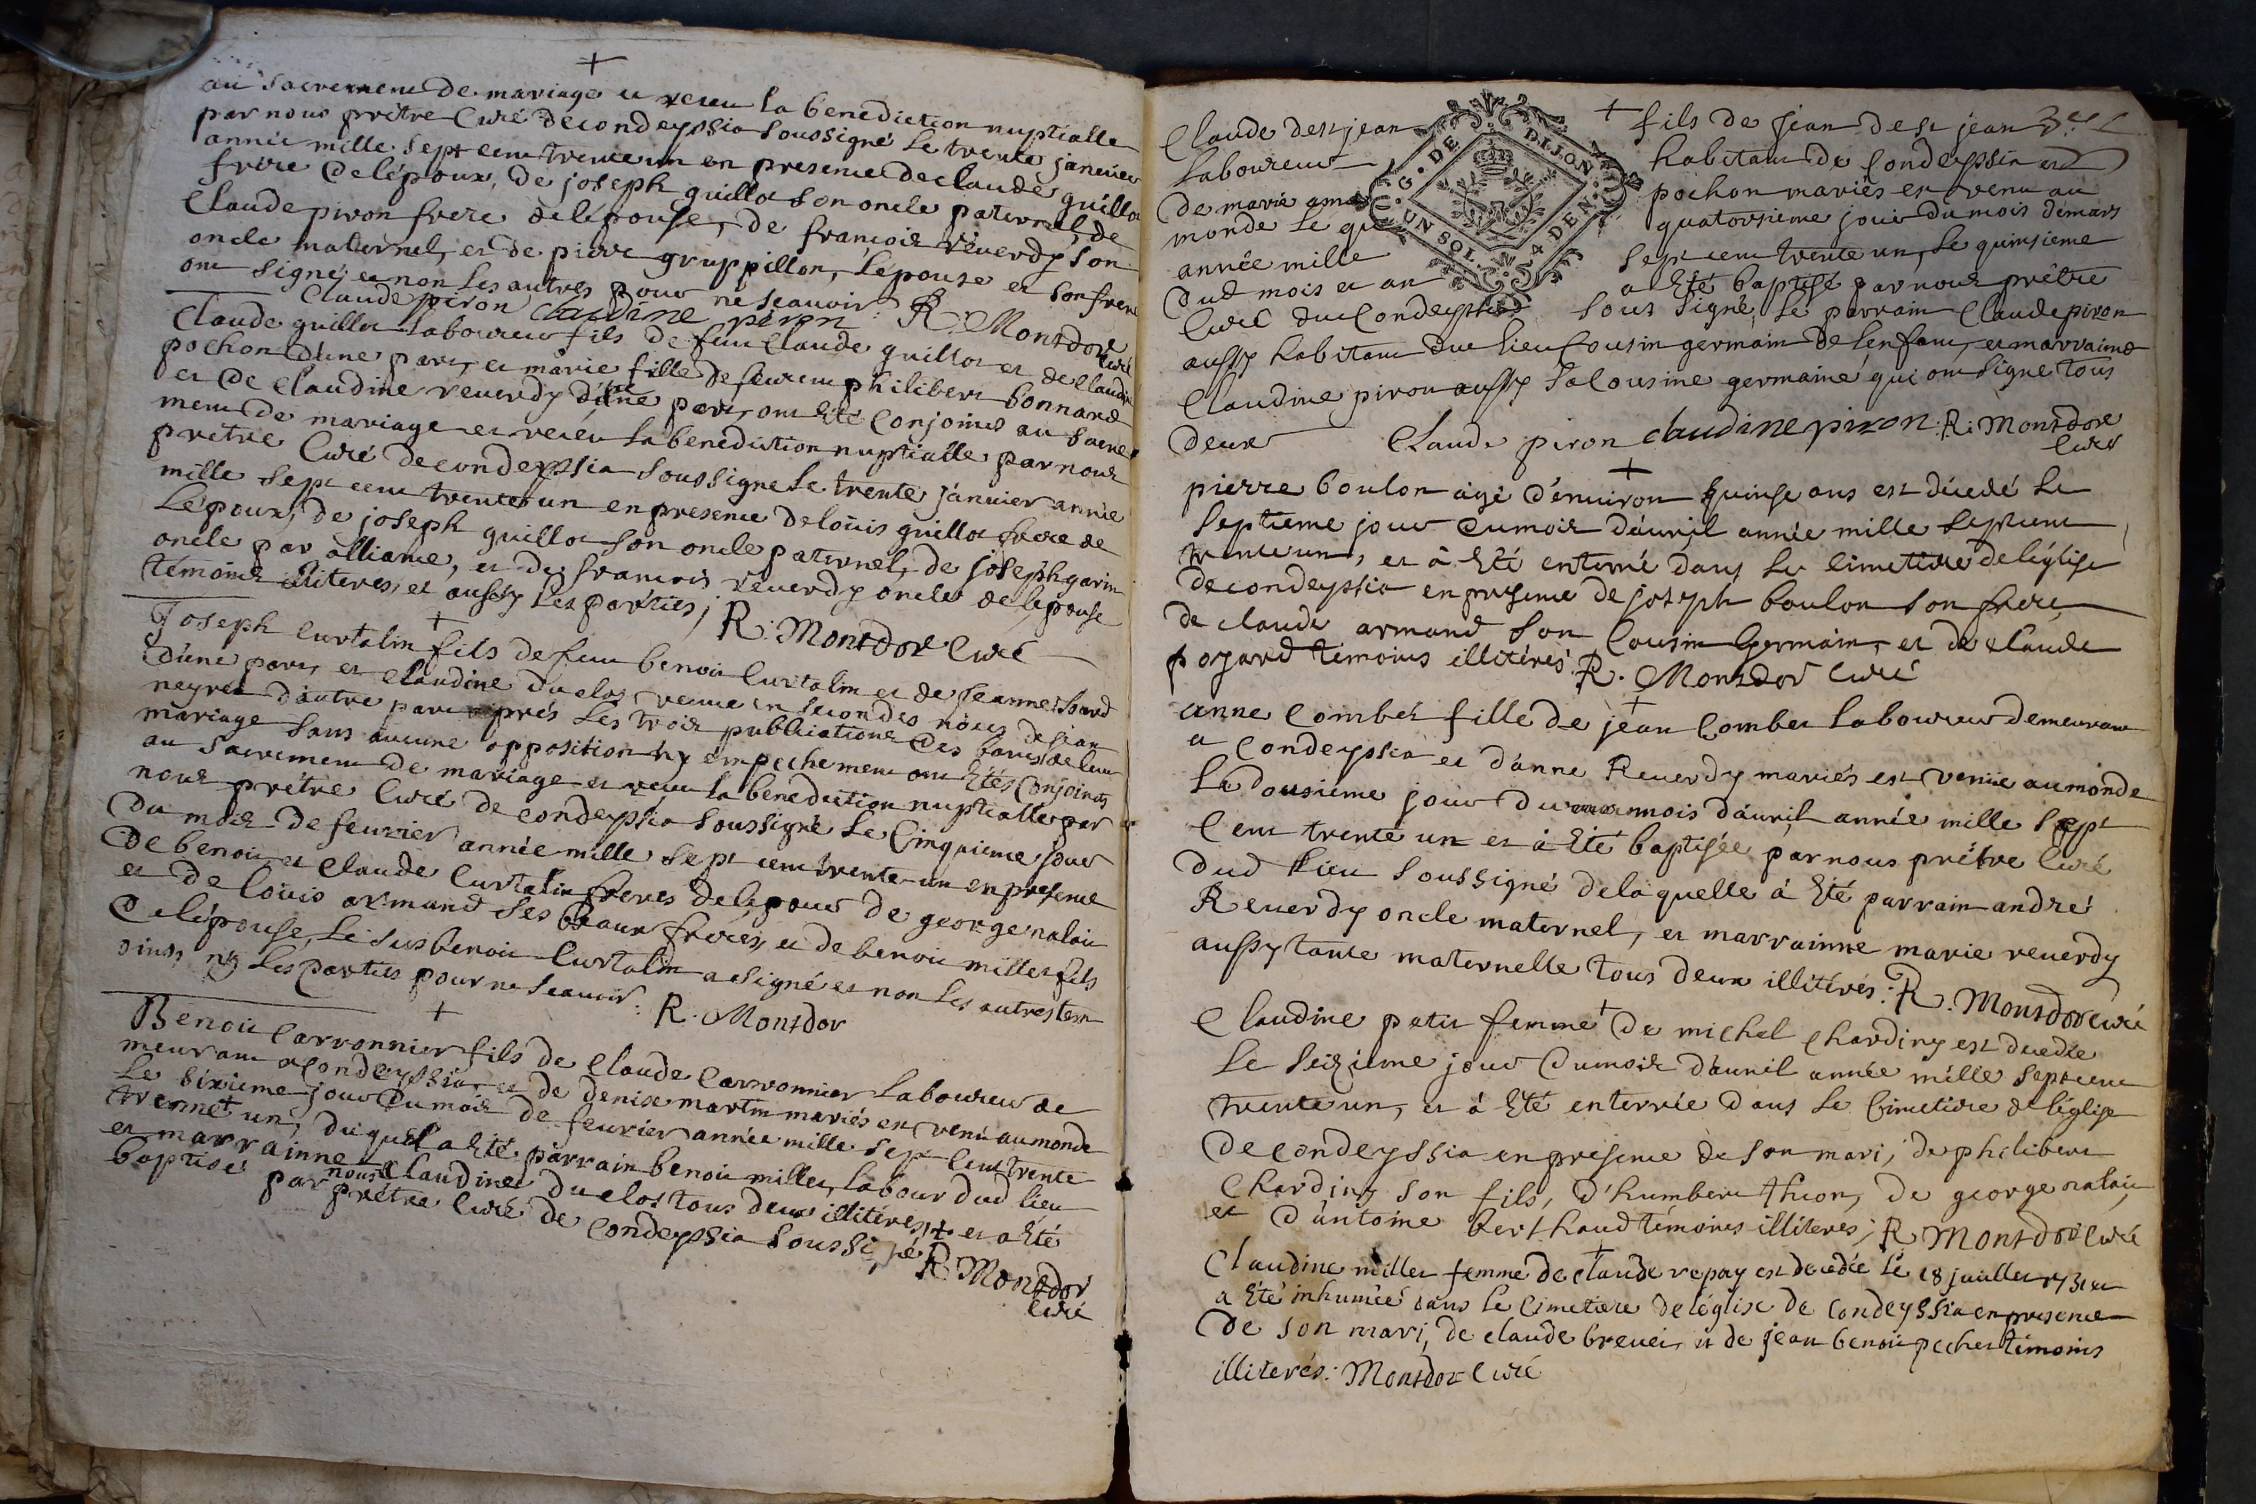 +
au sacrement de mariage et receu la benediction nuptialle
par nous prêtre Curé de condeyssia soussigné le trente janvier
année mille sept cent trente un en presence de claude guillot
frère de lépoux, de joseph guillot son oncle paternel, de
Claude piron frere de lépouse, de francois reuerdy son
oncle maternel, et de pierre gruppillon, lépouse et son frere
ont signé et non les autres pour ne sçauoir.
Claude piron claudine piron R. Montdor Curé
Claude guillot laboureur fils de feu Claude guillot et de Claudine
pochon d'une part, et marie fille de feu philibert bonnard
et de claudine reuerdy d'autre part, ont Eté conjoints au sacre
ment de mariage et receu la benediction nuptialle par nous
prêtre Curé de condeyssia soussigné le trente janvier année
mille sept cent trente un en presence de loüis guillot frere de
lépoux, de joseph guillot son oncle paternel, de joseph garin
oncle par alliance, et de francois reuerdy oncle de lépouse
témoins illiteres, et aussy les parties; R. Montdor Curé
+
Joseph Curtalin fils de feu benoit Curtalin et de jeanne
d'une part, et claudine duclos venue en secondes nôces de jean
neyret d'autre part aprés les trois publications des bans de leur
mariage sans aucune opposition ny empechement ont Etés Conjoints
au sacrement de mariage et receu la benediction nuptialle par
nous prêtre Curé de condeyssia soussigné le Cinquieme jour
du mois de feurier année mille sept cent trente-un en presence
de benoit et Claude Curtalin freres de lépoux de george nalain
et de loüis armand ses beaux freres, et de benoit millet fils
de lépouse, le sus benoit Curtalin a signé et non les autres tem
oins ny les parties pour ne sçauoir. R. Montdor
+
Benoit Carronnier fils de Claude Carronnier laboureur de
meurant a condeyssia, et de denise martin mariés est venu au monde
le sixieme jour du mois de feurier année mille sept Cent trente
trente un, duquel a Eté parrain benoit millet, labour dud lieu
et marrainne Claudine duclos tous deux illitérés, + et a Eté
baptisé par nous prêtre Curé de condeyssia soussigné R. Montdor
Curé
Claude de st jean + fils de jean de st jean
laboureur habitant de Condeyssia et
de marie pochon mariés est venu au
monde le quatorsieme jour du mois de mars
année mille sept cent trente un, le quinsieme
dud mois et an a Eté baptisé par nous prêtre
Curé du Condeyssia sous signé, le parrain Claude piron
aussy habitant dud lieu Cousin germain de lenfant, et marrainne
Claudine piron aussy sa Cousine germaine qui ont signe tous
deux Claude piron claudine piron R. Montdor
Curé
G. DE DIJON.
UN SOL. N 4 DEN.
+
pierre boulon agé d'enuiron quinse ans est décedé le
septieme jour du mois d'auril année mille sept cent
trente un, et à Eté enterré dans le cimetière de léglise
de condeyssia en presence de joseph boulon son frere,
de claude armand son Cousin Germain, et de Claude
poyard témoins illitérés. R. Montdor Curé
+
anne Combet fille de jean Combet laboureur demeurant
a Condeyssia et d'anne Reuerdy mariés est venue au monde
le dousieme jour du mois d'auril année mille sept
Cent trente un et à Eté baptisée par nous prêtre Curé
dud lieu soussigné de laquelle à Eté parrain andré
Reuerdy oncle maternel, et marrainne marie reuerdy
aussy tante maternelle tous deux illitérés. R. Montdor Curé
+
Claudine petit femme de michel chardiny est decedée
le seizieme jour du mois d'auril année mille sept cent
trente un, et à Eté enterrée dans le Cimetière de léglise
de condeyssia en presence de son mari, de philibert
Chardiny son fils, d'humbert thion, de george nalain,
et d'antoine berthaud témoins illiteres; R Montdor Curé
+
Claudine millet femme de claude repay est decedée le 18 juillet 1731 et
a Eté inhumée dans le Cimetiere de léglise de Condeyssia en presence
de son mari, de claude breuet, et de jean benoit pechet témoins
illiterés. Montdor Curé